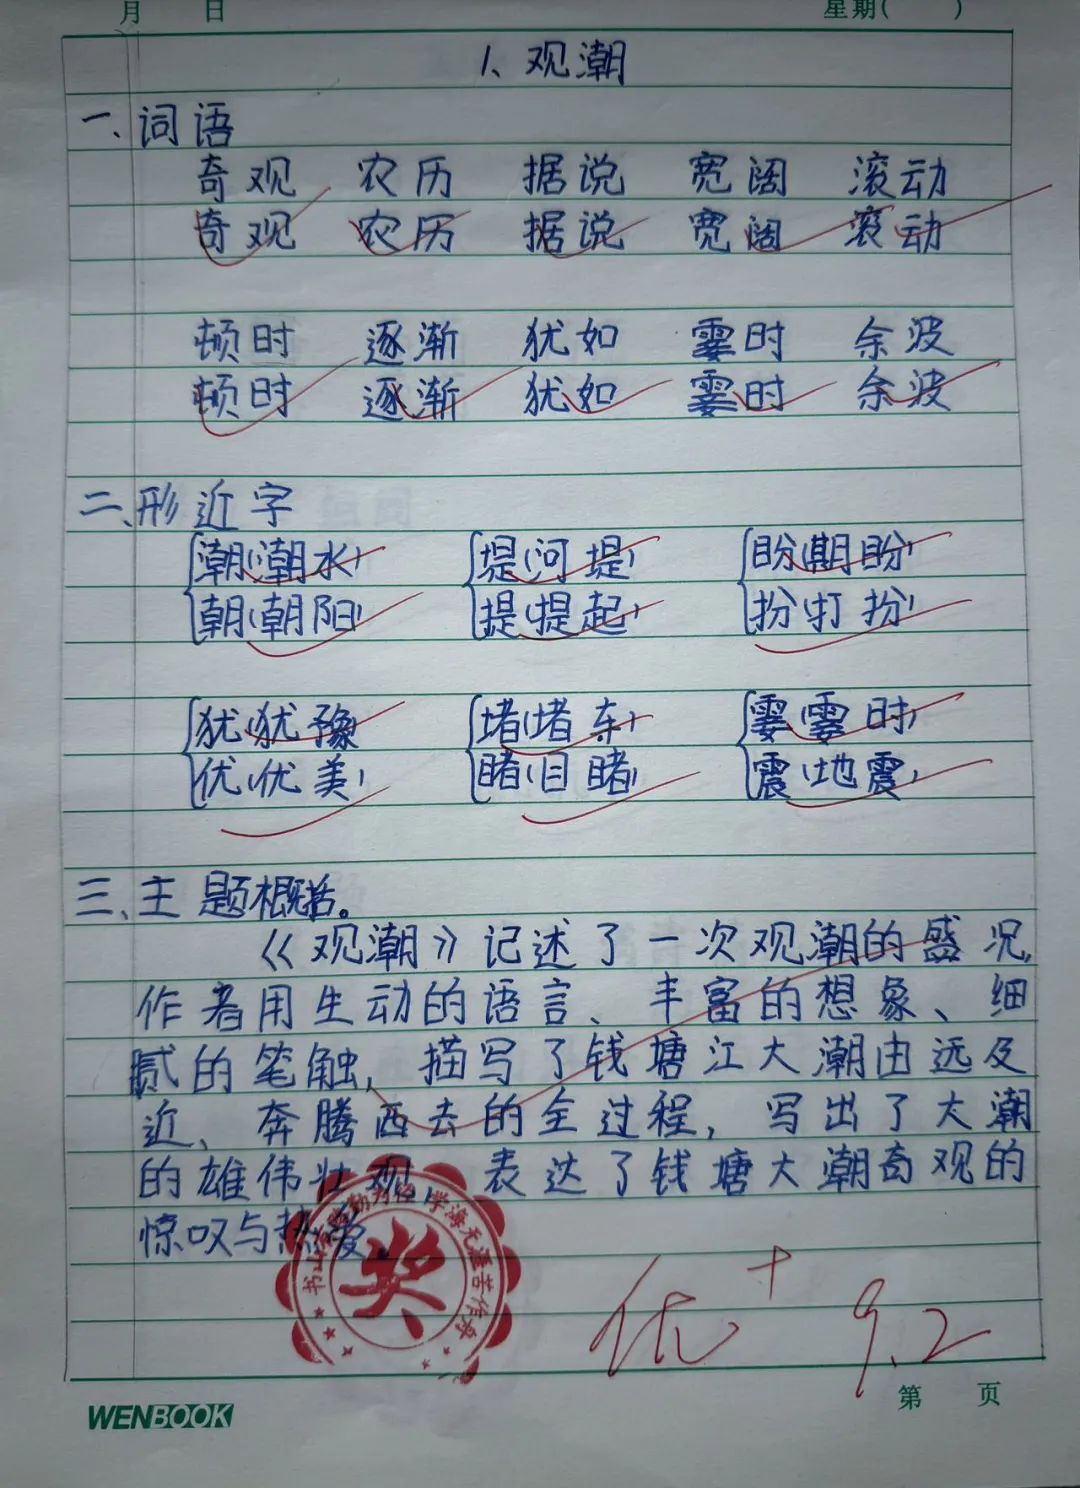 月 日 星期( )
1、观潮
一、词语
奇观 农历 据说 宽阔 滚动
奇观 农历 据说 宽阔 滚动
顿时 逐渐 犹如 霎时 余波
顿时 逐渐 犹如 霎时 余波
二、形近字
潮(潮水) 堤(河堤) 盼(期盼)
朝(朝阳) 提(提起) 扮(打扮)
犹(犹豫) 堵(堵车) 霎(霎时)
优(优美) 睹(目睹) 震(地震)
三、主题概括。
《观潮》记述了一次观潮的盛况,
作者用生动的语言、丰富的想象、细
腻的笔触,描写了钱塘江大潮由远及
近、奔腾西去的全过程,写出了大潮
的雄伟壮观,表达了钱塘大潮奇观的
惊叹与热爱。
书山有路勤为径 学海无涯苦作舟
奖
优+ 9.2
第 页
WENBOOK